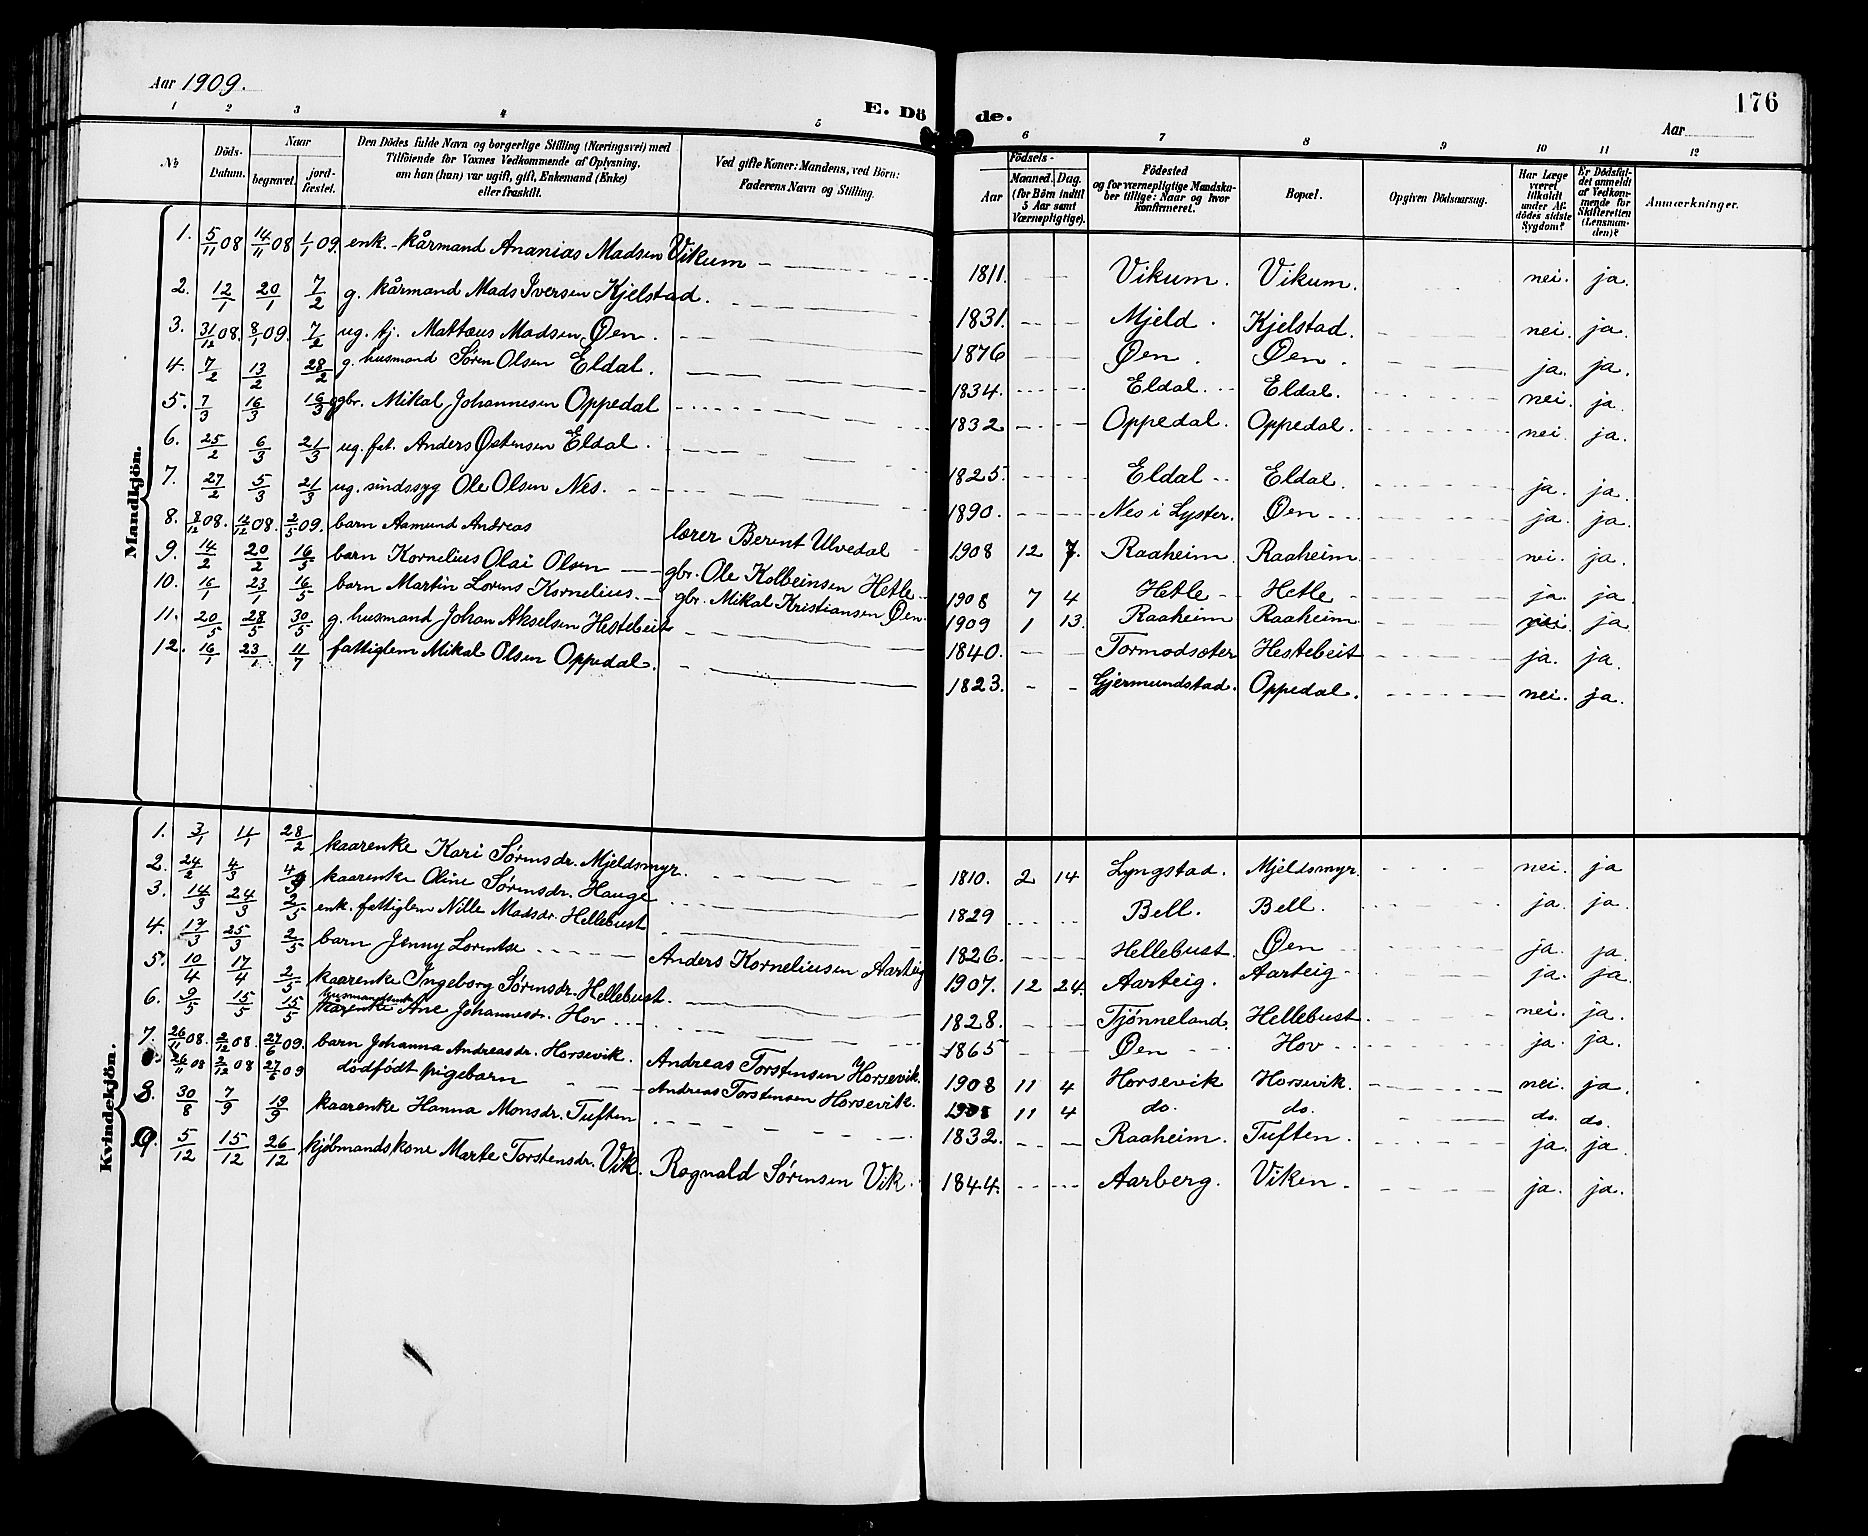 Aar 1909.
E. Döde.
176
Aar
1 2 3 4 5 6 7 8 9 10 11 12
No
Döds-Datum.
Naar
begravet.
jord-fæstet.
Den Dödes fulde Navn og borgerlige Stilling (Næringsvei) med
Tilföiende for Voxnes Vedkommende af Oplysning,
om han (hun) var ugift, gift, Enkemand (Enke)
eller fraskilt.
Ved gifte Koner: Mandens, ved Börn:
Faderens Navn og Stilling.
Födsels-
Aar
Maaned. Dag.
(for Börn indtil
5 Aar samt
Værnepligtige).
Födested
og for værnepligtige Mandska-
ber tillige: Naar og hvor
konfirmeret.
Bopæl.
Opgiven Dödsaarsag.
Har Læge
været
tilkaldt
under Af-
dödes sidste
Sygdom?
Er Dödsfal-
det anmeldt
af Vedkom-
mende for
Skifteretten
(Lensman-
den)?
Anmærkninger.
Mandkjön.
1. 5/11 08 14/11 08 1/1 09. enk. kårmand Ananias Madsen Vikum 1811. Vikum. Vikum. nei. ja.
2. 12/1 20/1 7/2 g. kårmand Mads Iversen Kjelstad. 1831. Mjeld. Kjelstad. nei. ja.
3. 31/12 08. 8/1 09. 7/2 ug. tj. Mattæus Madsen Øen. 1876 Øen. Øen. ja. ja.
4. 7/2 13/2 28/2 g. husmand Søren Olsen Eldal. 1834. Eldal. Eldal. nei. ja
5. 7/3 16/3 16/3 gbr. Mikal Johannesen Oppedal 1832 Oppedal. Oppedal. nei. ja.
6. 25/2 6/3 21/3 ug. fat. Anders Østensen Eldal. 1825. Eldal Eldal. ja. ja.
7. 27/2 5/3 21/3 ug. sindssyg Ole Olsen Nes. 1890. Nes i Lyster. Øen ja. ja.
8. 8/12 08. 14/12 08. 2/5 09. barn Aamund Andreas lærer Berent Ulvedal 1908 12 7. Raaheim Raaheim nei. ja.
9. 14/2 20/2 16/5 barn Kornelius Olai Olsen gbr. Ole Kolbeinsen Hetle 1908 7 4 Hetle Hetle ja. ja.
10. 16/1 23/1 16/5 barn Martin Lorens Kornelius. gbr. Mikal Kristiansen Øen. 1909 1 13. Raaheim Raaheim nei. ja
11. 20/5 28/5 30/5 g. husmand Johan Akselsen Hestebeit 1840. Tormodsæter Hestebeit ja. ja.
12. 16/1 23/1 11/7 fattiglem Mikal Olsen Oppedal. 1823. Gjermundstad. Oppedal. nei. ja.
Kvindekjön.
1. 3/1 11/1 28/2 kaarenke Kari Sørensdr. Mjeldsmyr. 1810. 2 14 Lyngstad. Mjeldsmyr. nei. ja
2. 24/2 4/3 4/3 kaarenke Oline Sørensdr. Hauge 1829 Bell. Bell. ja. ja.
3. 14/3 24/3 2/5 enk. fattiglem Nille Madsdr. Hellebust 1826. Hellebust Øen ja. ja.
4. 17/3 25/3 2/5 barn Jenny Lorentse Anders Korneliusen Aarteig 1907. 12 24. Aarteig. Aarteig ja. ja.
5. 10/4 17/4 2/5 kaarenke Ingeborg Sørensdr. Hellebust. 1828. Tjønneland. Hellebust nei. ja.
6. 9/5 15/5 15/5 kårenke Ane Johannesdr. Hov 1865 Øen Hov ja. ja.
7. 26/11 08. 2/12 08. 27/6 09. barn Johanna Andreasdr. Horsevik. Andreas Torstensen Horsevik. 1908 11 4 Horsevik Horsevik. nei. ja.
26/11 08 2/12 08 27/6 09 dødfødt pigebarn Andreas Torstensen Horsevik. 1908 11 4 do. do. do. do.
8. 30/8 7/9 19/9 kaarenke Hanna Monsdr. Tuften 1832. Raaheim. Tuften. ja. ja
9. 5/12 15/12 26/12 kjøbmandskone Marte Torstensdr. Vik. Rognald Sørensen Vik. 1844. Aarberg. Viken. ja. ja.